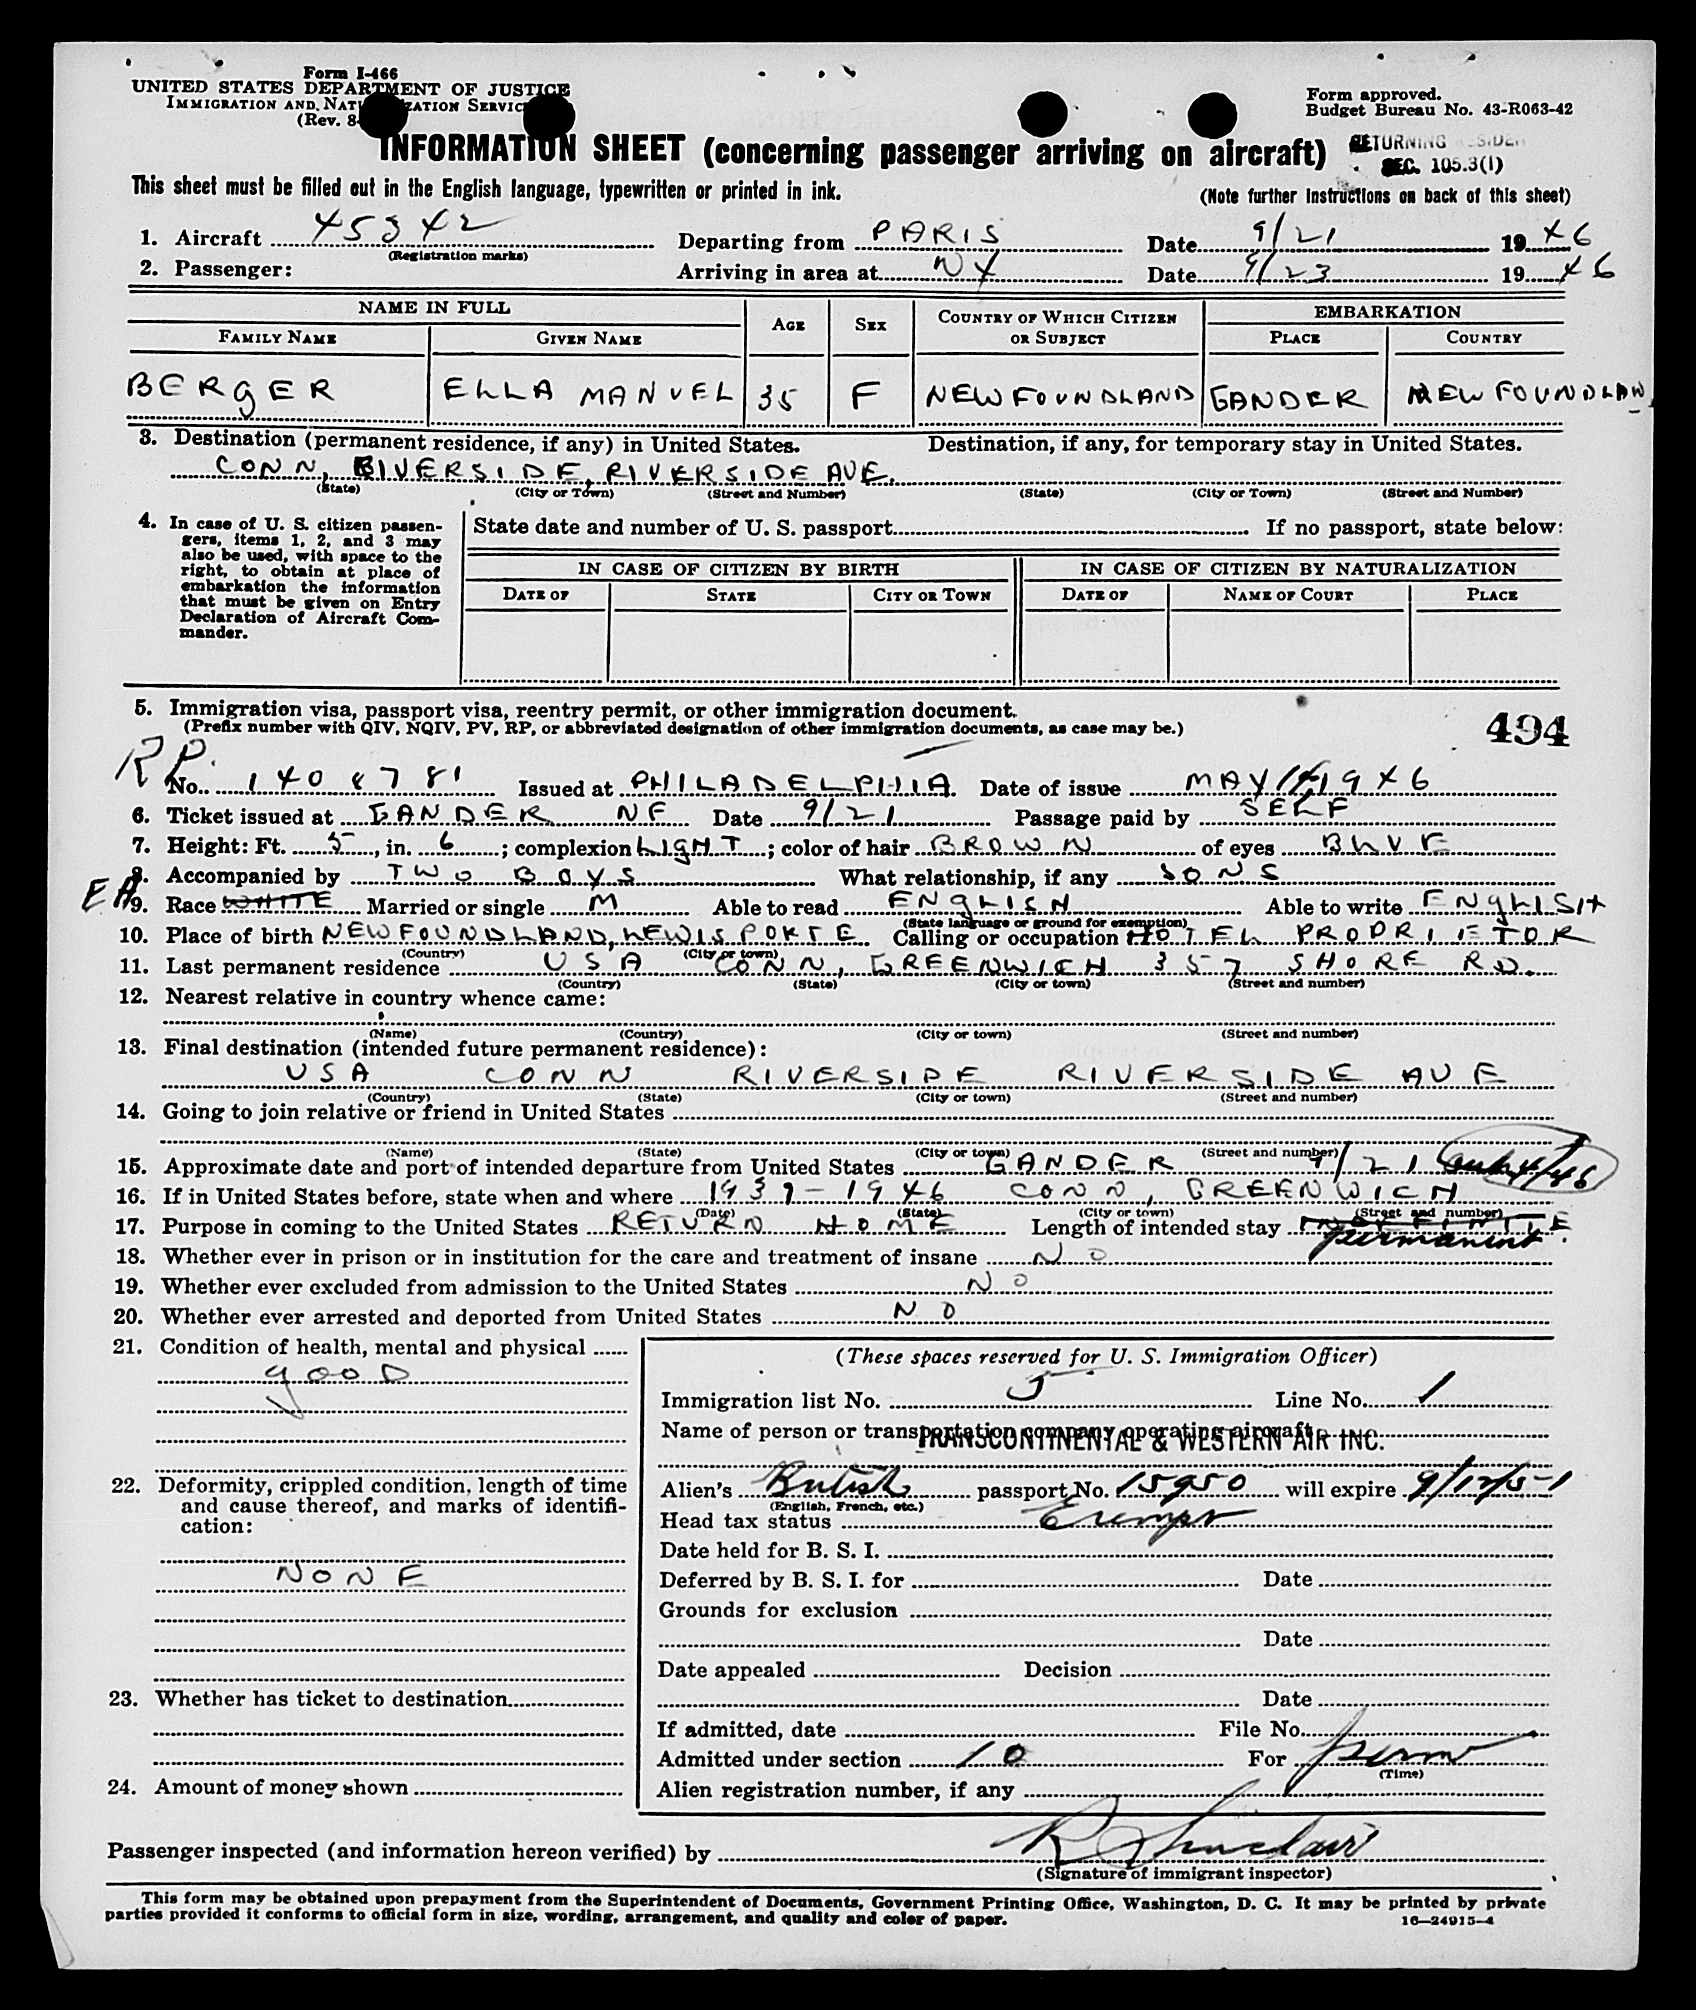 Form I-466
UNITED STATES DEPARTMENT OF JUSTICE
IMMIGRATION AND NATURALIZATION SERVICE
(Rev. 8-
Form approved.
Budget Bureau No. 43-R063-42
INFORMATION SHEET (concerning passenger arriving on aircraft)
RETURNING RESIDENT
SEC. 105.3(1)
This sheet must be filled out in the English language, typewritten or printed in ink.
(Note further instructions on back of this sheet)
1. Aircraft 45342 Departing from PARIS Date 9/21 1946
(Registration marks)
2. Passenger: Arriving in area at NY Date 9/23 1946
NAME IN FULL AGE SEX COUNTRY OF WHICH CITIZEN OR SUBJECT EMBARKATION
FAMILY NAME GIVEN NAME PLACE COUNTRY
BERGER ELLA MANUEL 35 F NEWFOUNDLAND GANDER NEWFOUNDLAND
3. Destination (permanent residence, if any) in United States. Destination, if any, for temporary stay in United States.
CONN, RIVERSIDE, RIVERSIDE AVE.
(State) (City or Town) (Street and Number) (State) (City or Town) (Street and Number)
4. In case of U. S. citizen passen-
gers, items 1, 2, and 3 may
also be used, with space to the
right, to obtain at place of
embarkation the information
that must be given on Entry
Declaration of Aircraft Com-
mander.
State date and number of U. S. passport If no passport, state below:
IN CASE OF CITIZEN BY BIRTH IN CASE OF CITIZEN BY NATURALIZATION
DATE OF STATE CITY OR TOWN DATE OF NAME OF COURT PLACE
5. Immigration visa, passport visa, reentry permit, or other immigration document.
(Prefix number with QIV, NQIV, PV, RP, or abbreviated designation of other immigration documents, as case may be.)
494
RP.
No. 1408781 Issued at PHILADELPHIA Date of issue MAY 14 1946
6. Ticket issued at GANDER NF Date 9/21 Passage paid by SELF
7. Height: Ft. 5, in. 6; complexion LIGHT; color of hair BROWN of eyes BLUE
8. Accompanied by TWO BOYS What relationship, if any SONS
EA
9. Race WHITE Married or single M Able to read ENGLISH Able to write ENGLISH
(State language or ground for exemption)
10. Place of birth NEWFOUNDLAND, LEWISPORTE Calling or occupation HOTEL PROPRIETOR
(Country) (City or town)
11. Last permanent residence USA CONN, GREENWICH 357 SHORE RD.
(Country) (State) (City or town) (Street and number)
12. Nearest relative in country whence came:
(Name) (Country) (City or town) (Street and number)
13. Final destination (intended future permanent residence):
USA CONN RIVERSIDE RIVERSIDE AVE
(Country) (State) (City or town) (Street and number)
14. Going to join relative or friend in United States
(Name) (State) (City or town) (Street and number)
15. Approximate date and port of intended departure from United States GANDER 9/21
16. If in United States before, state when and where 1937-1946 CONN, GREENWICH
(Date) (State) (City or town) (Street and number)
17. Purpose in coming to the United States RETURN HOME Length of intended stay INDEFINITE.
permanent
18. Whether ever in prison or in institution for the care and treatment of insane NO
19. Whether ever excluded from admission to the United States NO
20. Whether ever arrested and deported from United States NO
21. Condition of health, mental and physical
GOOD
22. Deformity, crippled condition, length of time
and cause thereof, and marks of identifi-
cation:
NONE
23. Whether has ticket to destination
24. Amount of money shown
(These spaces reserved for U. S. Immigration Officer)
Immigration list No. 5 Line No. 1
Name of person or transportation company operating aircraft
TRANSCONTINENTAL & WESTERN AIR INC.
Alien's British passport No. 15950 will expire 9/12/51
(English, French, etc.)
Head tax status Exempt
Date held for B. S. I.
Deferred by B. S. I. for Date
Grounds for exclusion
Date
Date appealed Decision
Date
If admitted, date File No.
Admitted under section 10 For perm
(Time)
Alien registration number, if any
Passenger inspected (and information hereon verified) by R Sinclair
(Signature of immigrant inspector)
This form may be obtained upon prepayment from the Superintendent of Documents, Government Printing Office, Washington, D. C. It may be printed by private
parties provided it conforms to official form in size, wording, arrangement, and quality and color of paper.
16—24915-4